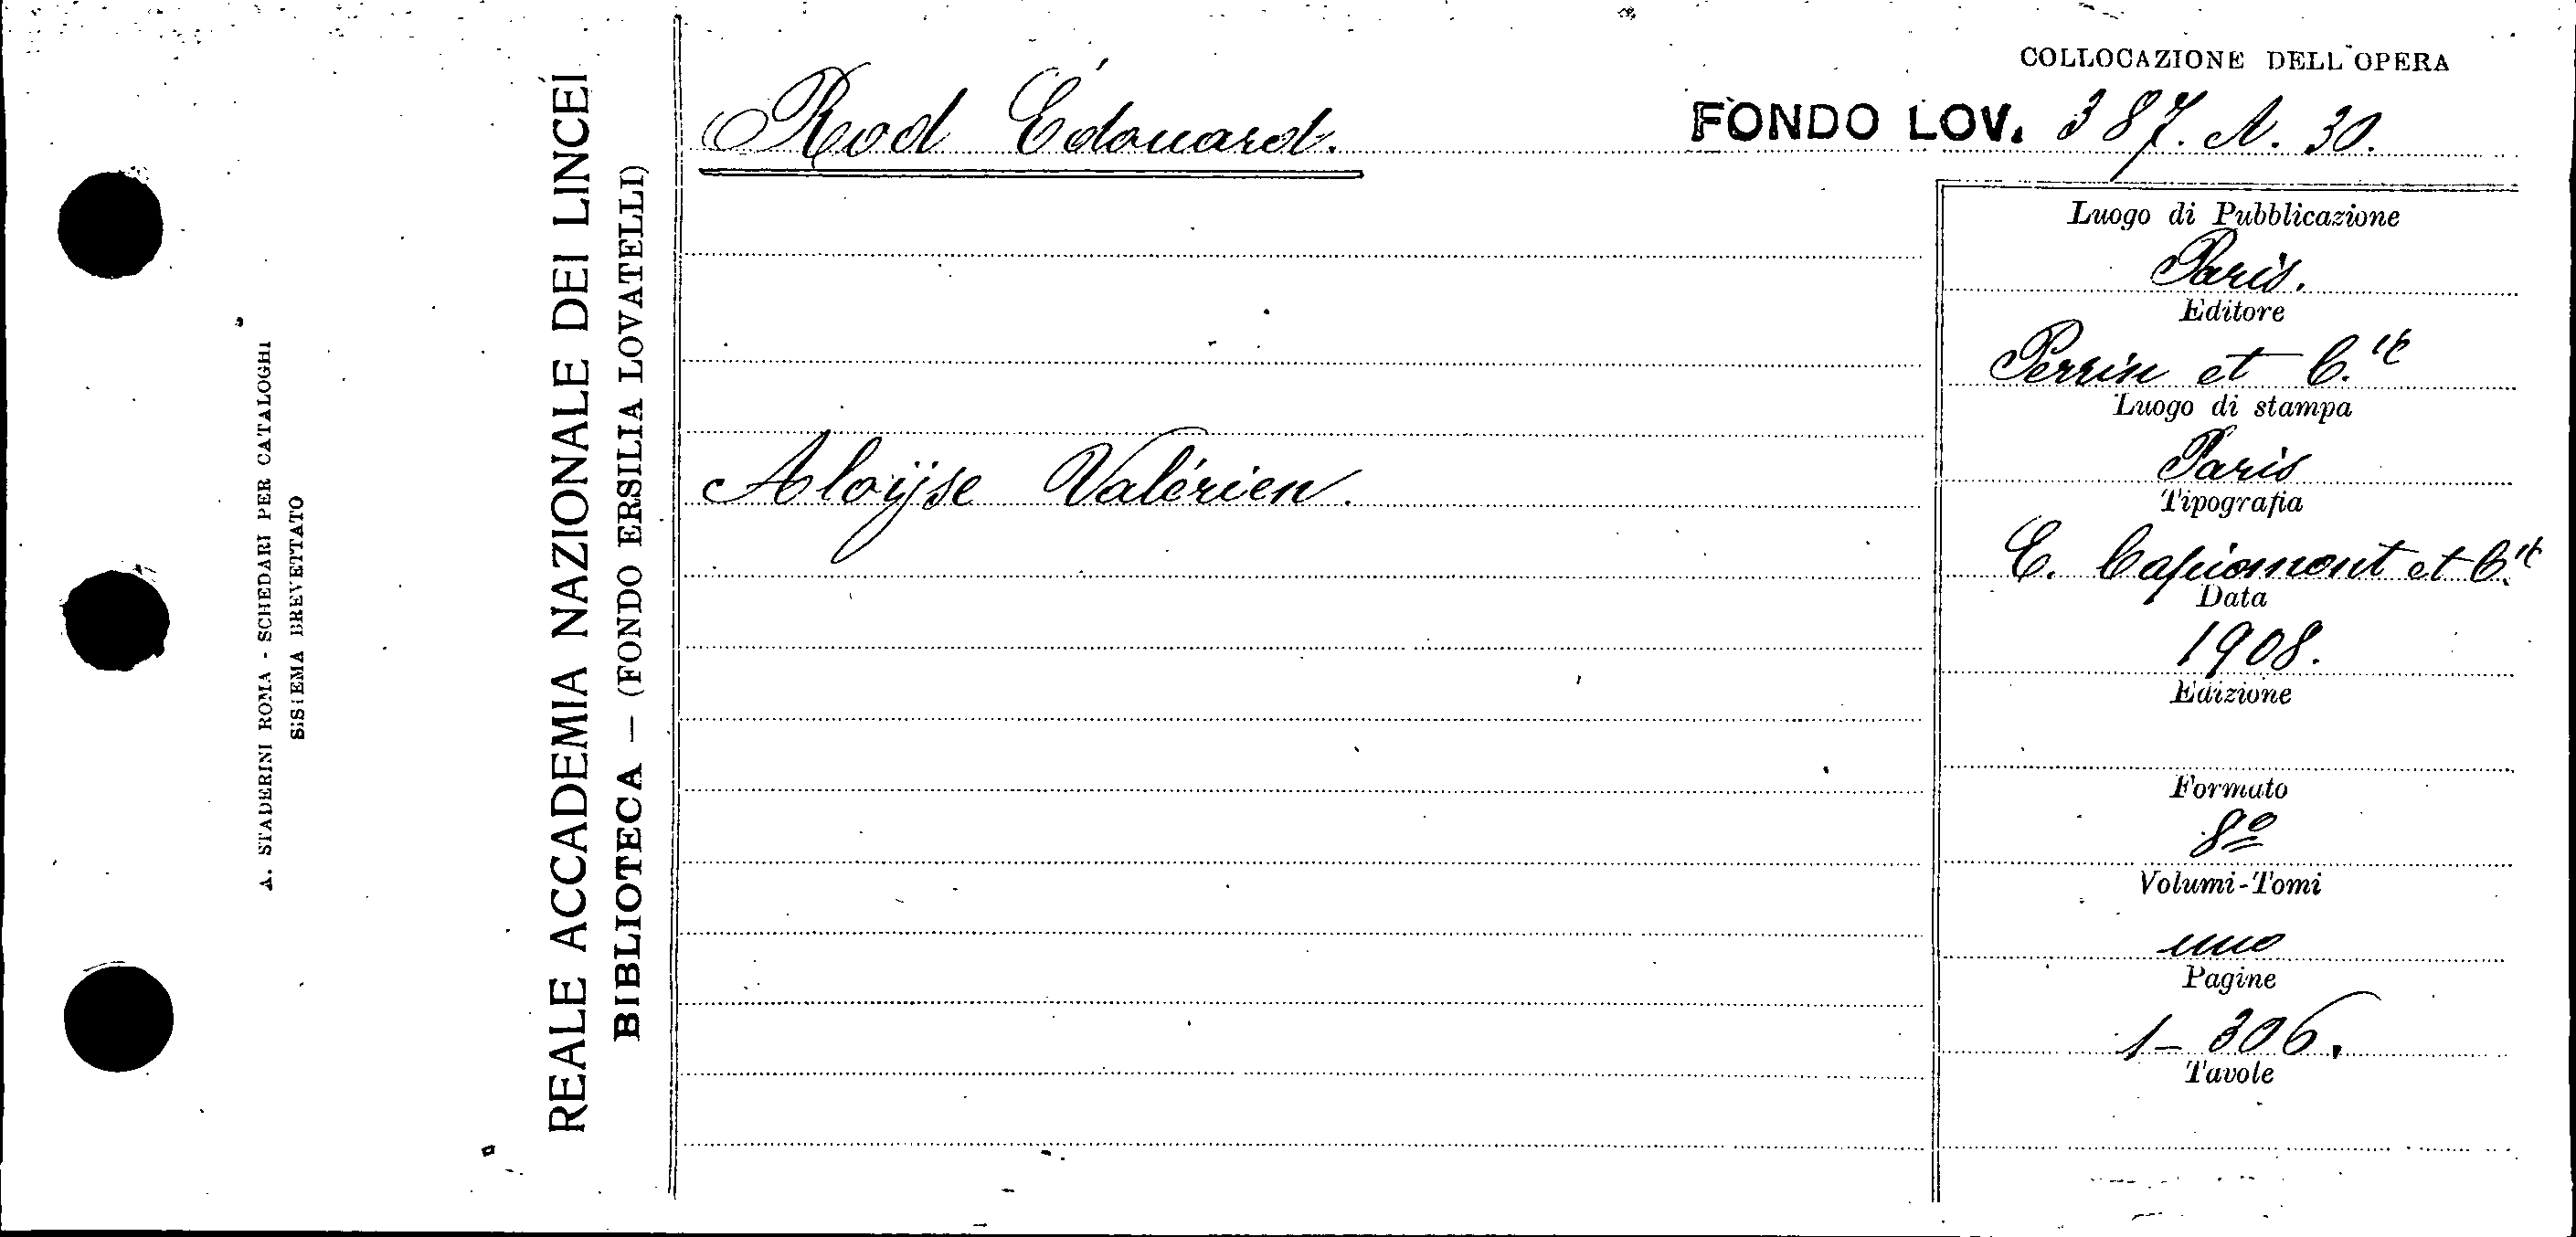 A. STADERINI ROMA - SCHEDARI PER CATALOGHI
SISTEMA BREVETTATO
REALE ACCADEMIA NAZIONALE DEI LINCEI
BIBLIOTECA — (FONDO ERSILIA LOVATELLI)
COLLOCAZIONE DELL'OPERA
Rod Édouard.
FONDO LOV. 387. A. 30.
Aloÿse Valérien.
Luogo di Pubblicazione
Paris.
Editore
Perrin et C.ie
Luogo di stampa
Paris
Tipografia
E. Capiomont et C.ie
Data
1908.
Edizione
Formato
8º
Volumi-Tomi
uno
Pagine
1-306.
Tavole